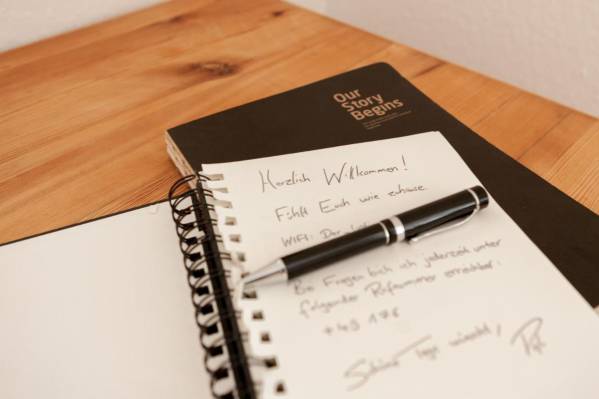 Our
Story
Begins
Herzlich Willkommen!
Fühlt Euch wie zuhause.
WIFI:
Bei Fragen bin ich jederzeit unter
folgender Rufnummer erreichbar:
+49 176
Schöne Tage wünscht,